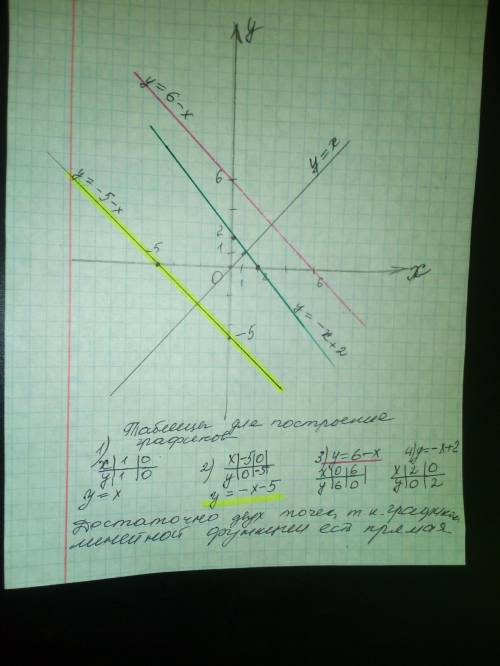 y
y=6-x
y=x
6
y=-5-x
2
1
-5
0
1
2
6
x
y=-x+2
-5
Таблицы для построение
графиков
1)
x|1|0
y|1|0
y=x
2)
x|-5|0|
y|0|-5|
y=-x-5
3) y=6-x
x|0|6|
y|6|0|
4) y=-x+2
x|2|0
y|0|2
Достаточно двух точек, т.к. график
линейной функции ест прямая